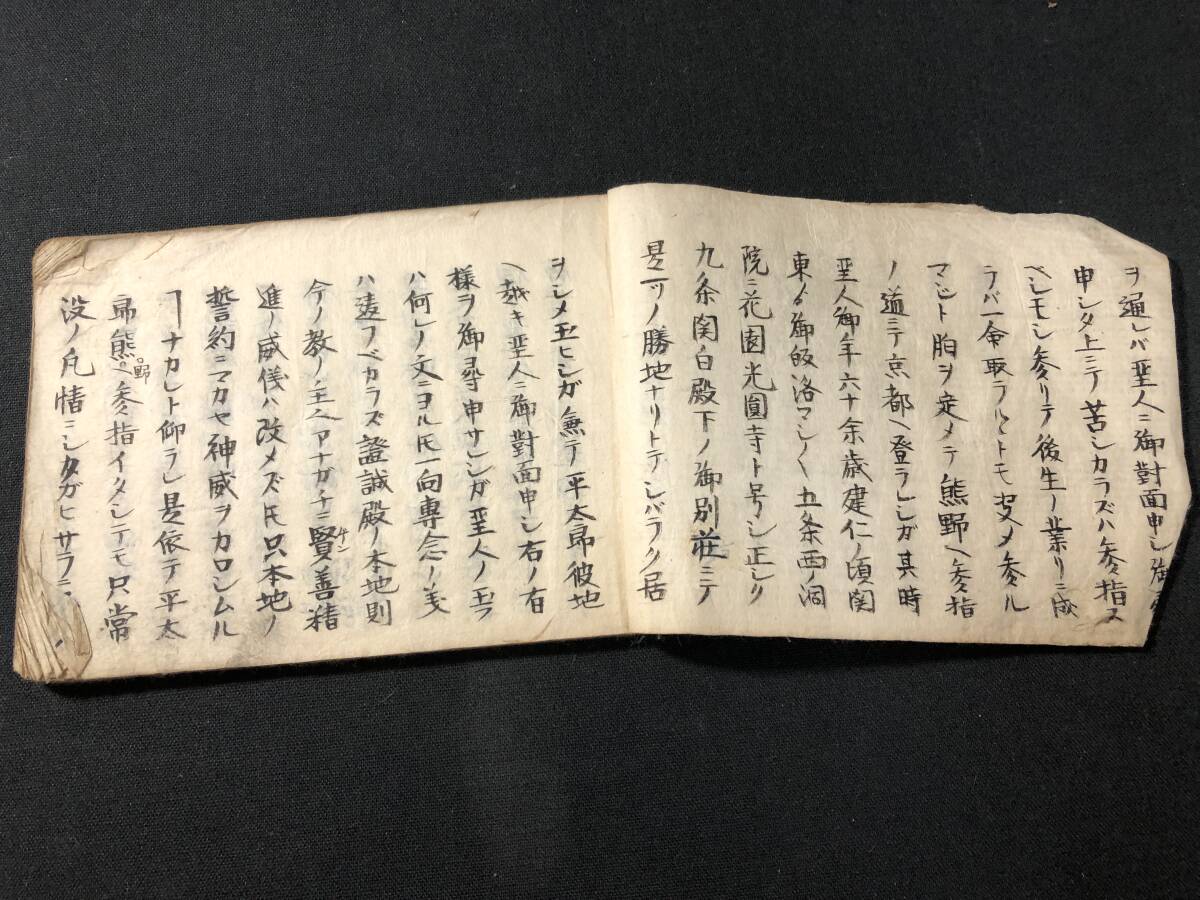 ヲ通レバ聖人ニ御對面申シ御
申シタ上ニテ苦シカラズハ参指ス
ベシモシ参リテ後生ノ業リニ成
ラバ一命取ラルヽトモ安メ参ル
マジト胸ヲ定メテ熊野ヘ参指
ノ道ニテ京都ヘ登ラレシガ其時
聖人御年六十余歳建仁ノ頃関
東ゟ御皈洛マシ〳〵五条西ノ洞
院ニ花園光圓寺ト号シ正シク
九条関白殿下ノ御別莊ニテ
是一ツノ勝地ナリトテシバラク居
ヲシメ玉ヒシガ無テ平太郎彼地
ヘ越キ聖人ニ御對面申シ右ノ有
様ヲ御尋申サレシガ聖人ノ玉フ
ハ何レノ文ニヨル𪜈一向專念ノ義
ハ違フベカラズ證誠殿ノ本地則
今ノ教ノ主ヘアナガチニ賢善精
ケン
進ノ威儀ハ改メズ𪜈只本地ノ
誓約ニマカセ神威ヲカロシムル
ヿナカレト仰ラレ是依テ平太
郎熊ヘ参指イタシテモ只常
野
没ノ凡情ニシタガヒサラニ